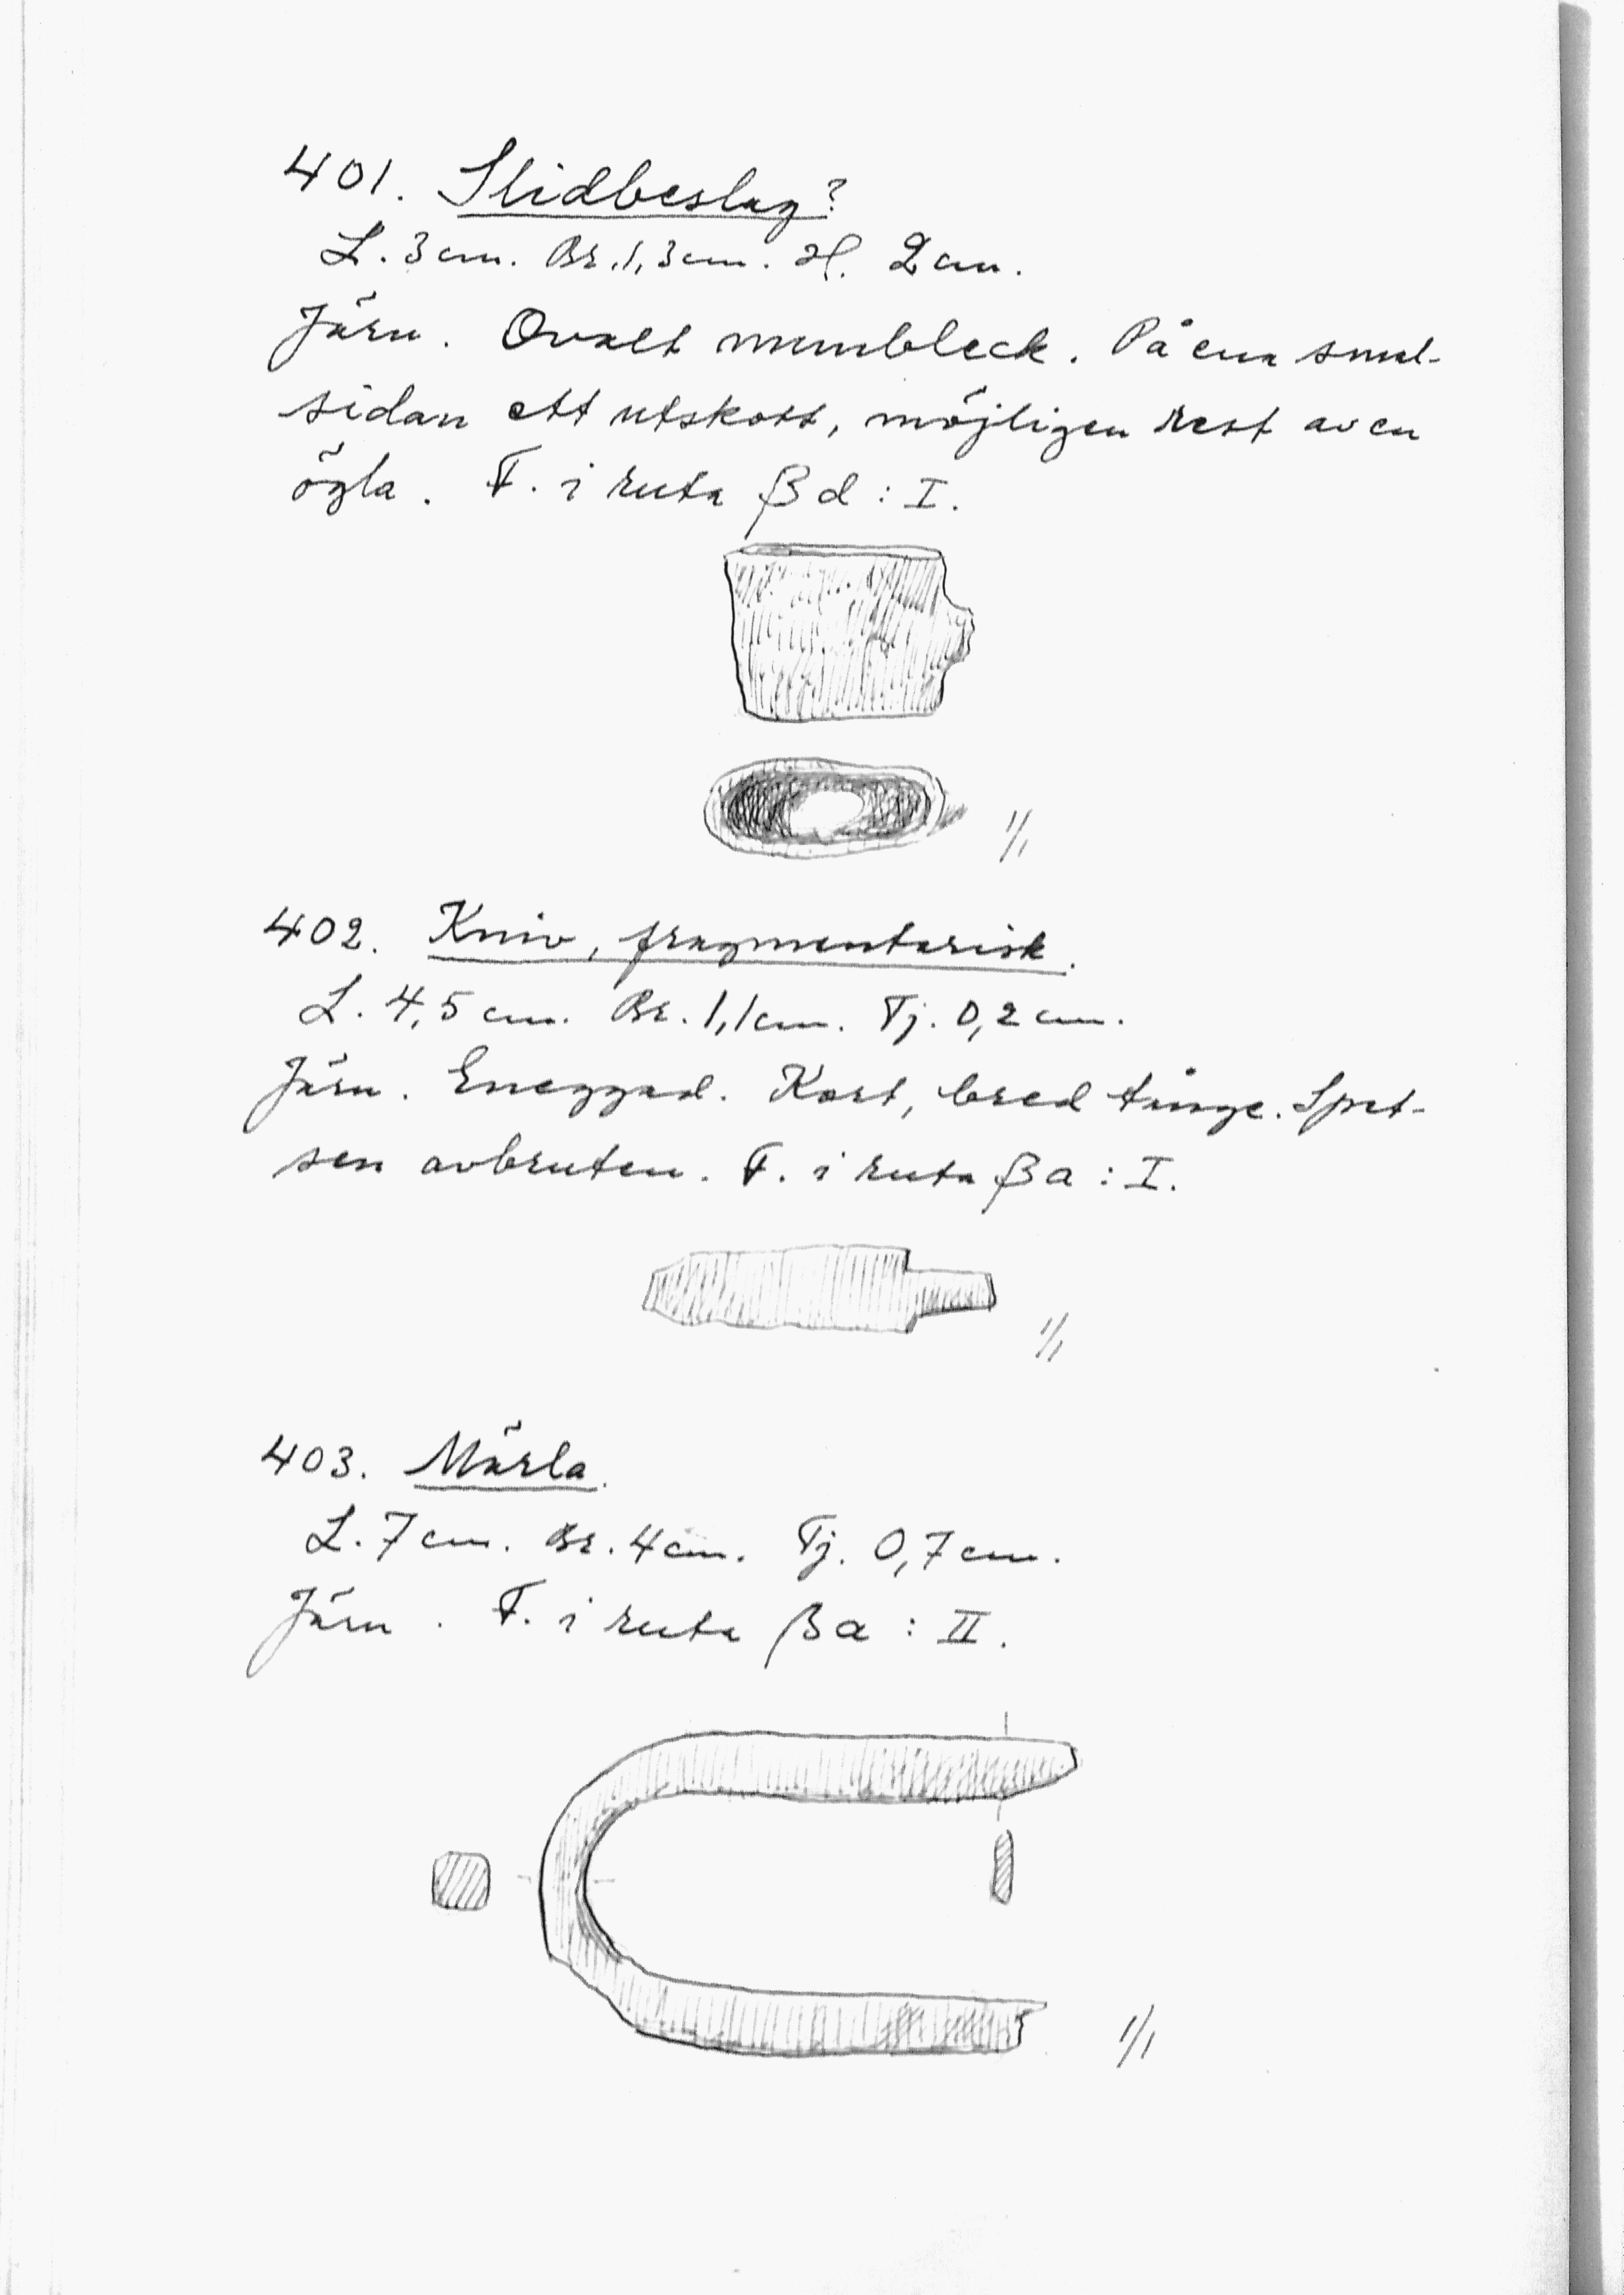 401. Slidbeslag?
L. 3 cm. Br. 1,3 cm. H. 2 cm.
Järn. Ovalt munbleck. På ena smal-
sidan ett utskott, möjligen rest av en
ögla. F. i ruta βd : I.
1/1
402. Kniv, fragmentarisk.
L. 4,5 cm. Br. 1,1 cm. Tj. 0,2 cm.
Järn. Eneggad. Kort, bred tånge. Spet-
sen avbruten. F. i ruta βa : I.
1/1
403. Märla.
L. 7 cm. Br. 4 cm. Tj. 0,7 cm.
Järn. F. i ruta βa : II.
1/1